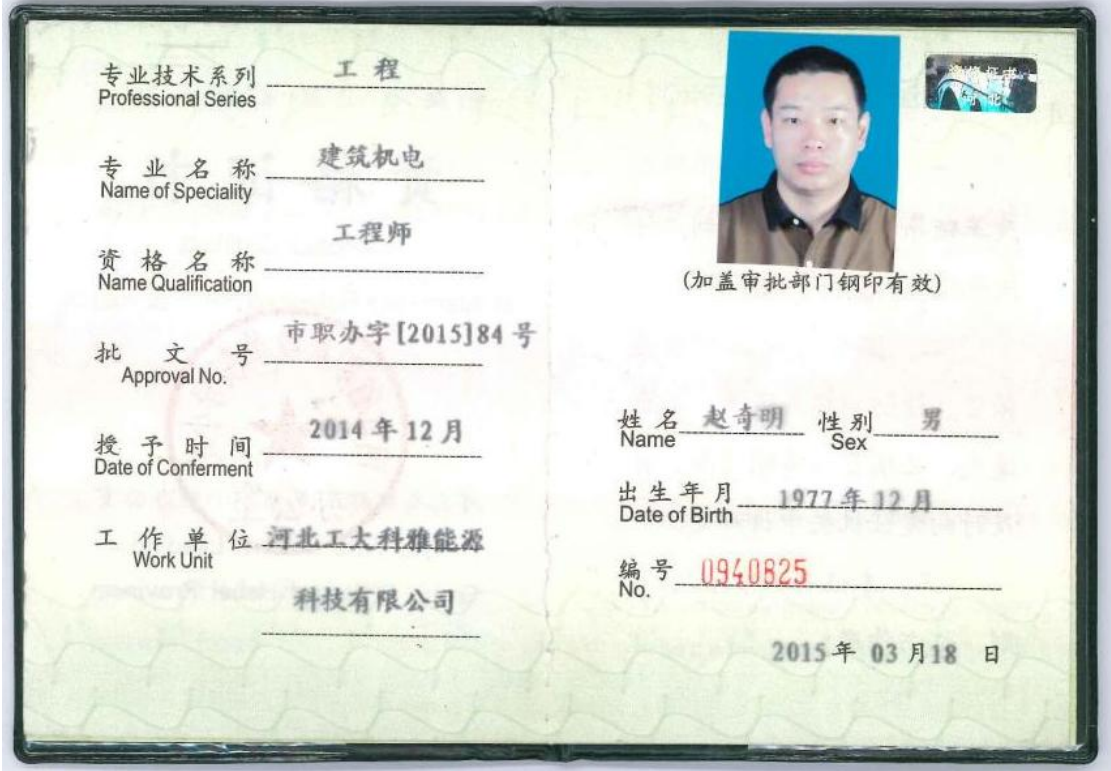 专业技术系列 工 程
Professional Series
专业名称 建筑机电
Name of Speciality
资格名称 工程师
Name Qualification
批文号 市职办字[2015]84号
Approval No.
授予时间 2014年12月
Date of Conferment
工作单位 河北工大科雅能源
Work Unit
科技有限公司
资格证书
河北
(加盖审批部门钢印有效)
姓名 赵奇明 性别 男
Name Sex
出生年月 1977年12月
Date of Birth
编号 0940825
No.
2015年 03月18 日